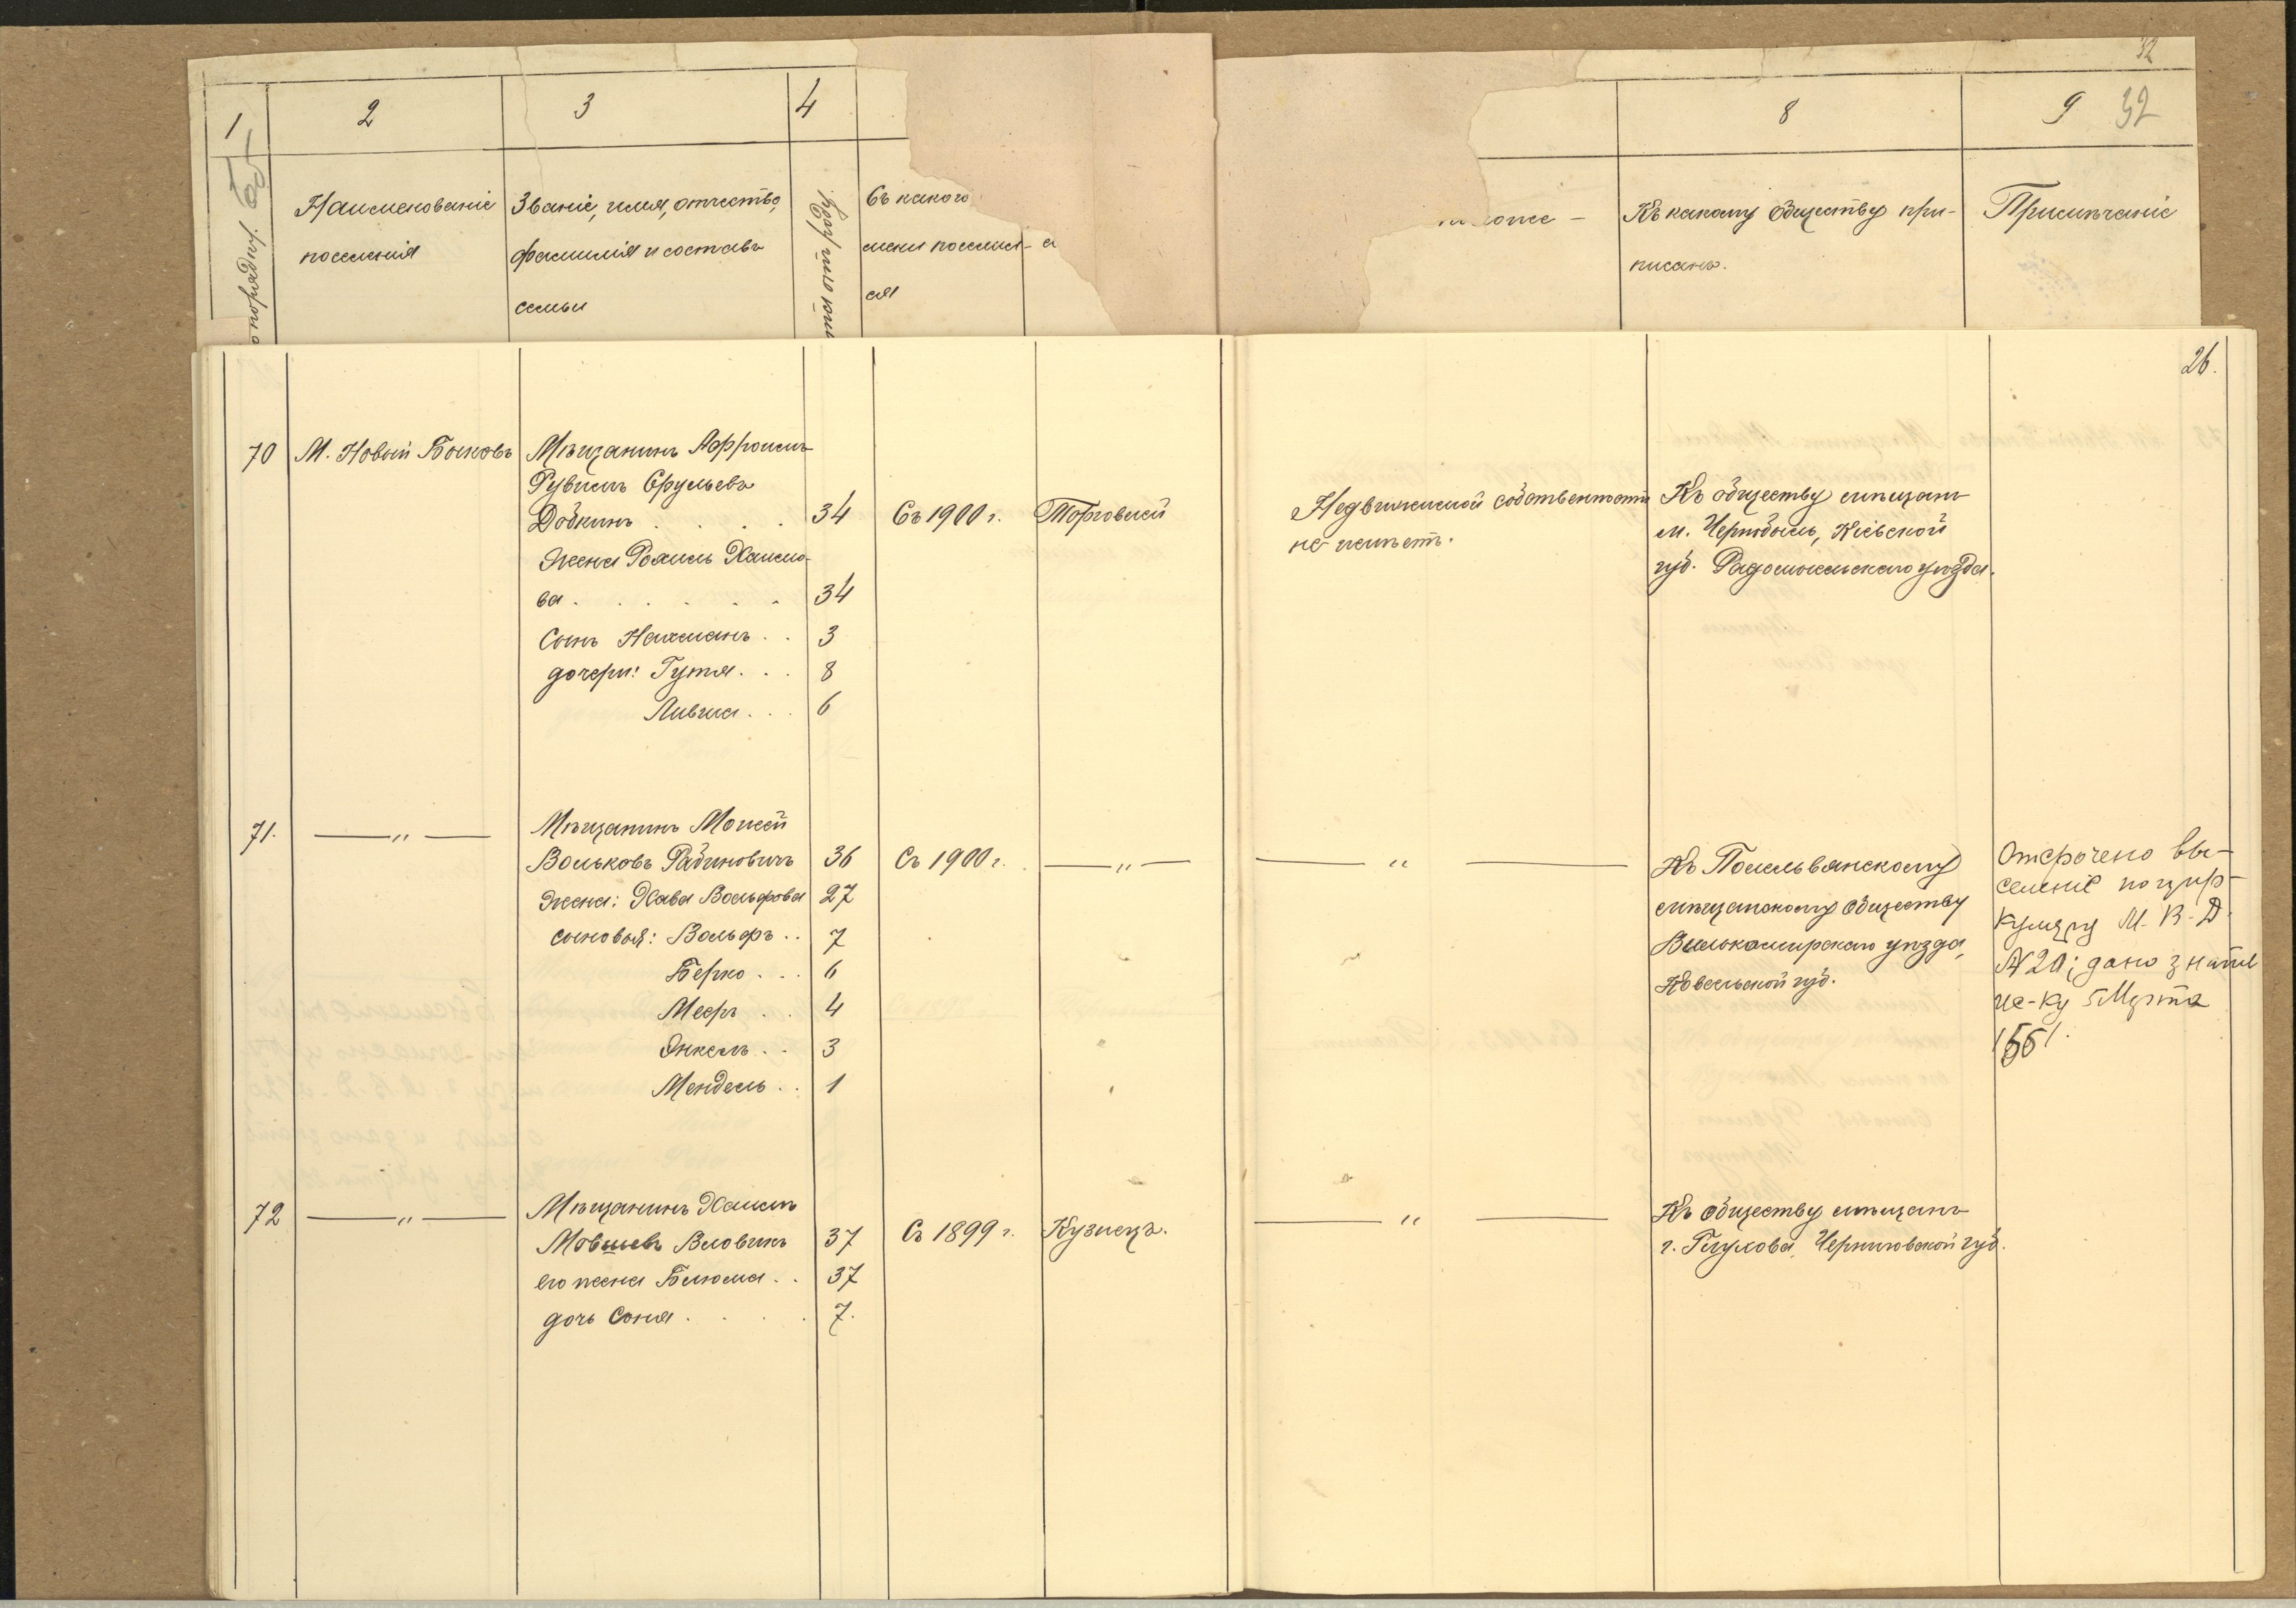 32
1
2
3
4
8
9 32
Наименованіе
поселенія
Званіе, имя, отчество,
фамилія и составъ
семьи
Съ какого
мени поселил-
ся
Къ какому обществу при-
писанъ.
Примѣчаніе
26.
70
М. Новый Быковъ
Мѣщанинъ Афроимъ
Рувимъ Срульевъ
Добкинъ . . . . 34
Съ 1900 г.
Торговлей
Недвижимой собственности
не имѣетъ.
Къ обществу мѣщанъ
м. Чернобыль, Кіевской
губ. Радомысльскаго уѣзда.
Жена Рохиль Хаимо-
ва . . . . . . 34
Сынъ Нахманъ . . 3
дочери: Гутя . . . 8
Ливша . . . 6
71.
— „ —
Мѣщанинъ Мовсей
Вольковъ Рабиновичъ 36
Съ 1900 г.
— „ —
— „ —
Къ Помельвянскому
мѣщанскому обществу
Вилькомирскаго уѣзда,
Ковенской губ.
Отсрочено вы-
селеніе по цир-
куляру М. В. Д.
№ 20; дано знать
5 Марта
155/.
Жена: Хава Вольфова 27
сыновья: Вольфъ . . 7
Берко . . . 6
Мееръ . . 4
Янкель . . 3
Мендель . . 1
72
— „ —
Мѣщанинъ Хаимъ
Мовшевъ Вловикъ 37
Съ 1899 г.
Кузнецъ.
— „ —
Къ обществу мѣщанъ
г. Глухова, Черниговской губ.
его жена Блюма . . 37
дочь Соня . . . . 7.